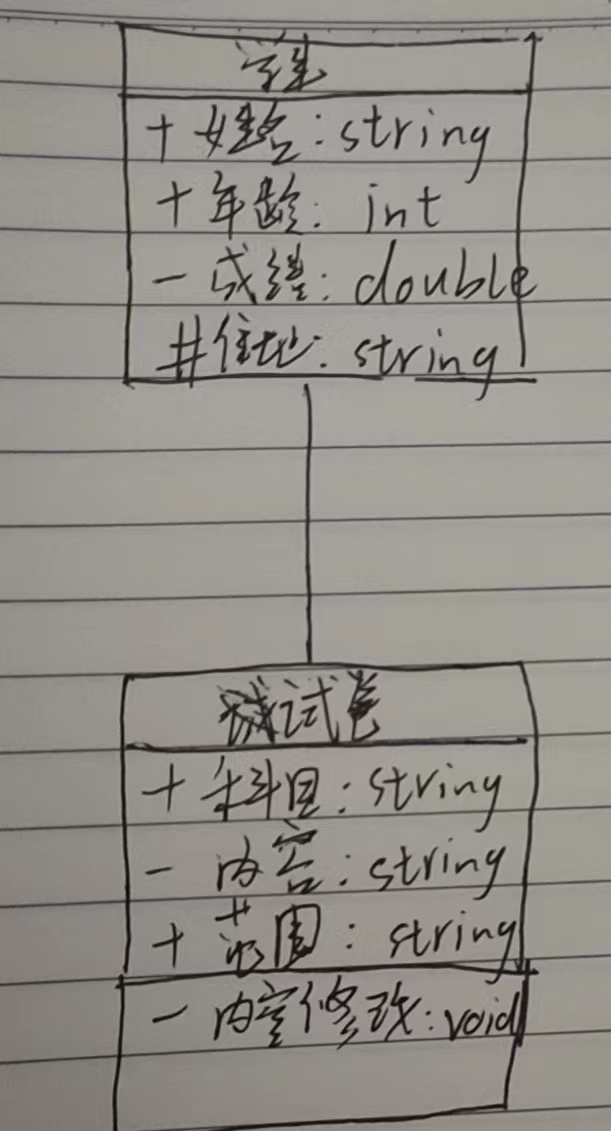 学生
+ 姓名: string
+ 年龄: int
- 成绩: double
# 住址: string
试卷
+ 科目: string
- 内容: string
+ 范围: string
- 内容修改: void